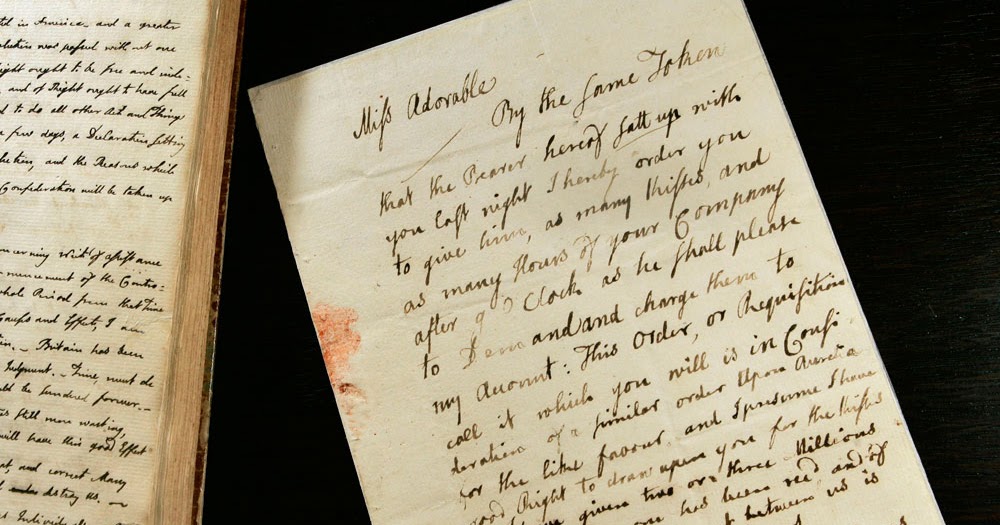 ted in America, and a greater
olution was passed with out one
Right ought to be free and inde-
, and of Right ought to have full
d to do all other Act and Things
a few days, a Declaration setting
olution, and the Reasons which
Confederation will be taken up
ncerning writ of assistance
mencement of the Contro-
whole Period from that Time
Causes and Effect, I am
. Britain has been
Judgment. — Time, must de
ld be sundered forever. —
is still more wasting,
will have this good Effect
at, and correct Many
destroy us. —
Miss Adorable
By the same Token
that the Bearer hereof satt up with
you last night I hereby order you
to give him, as many Kisses, and
as many Hours of your Company
after 9 O Clock as he shall please
to Demand and charge them to
my Account: This Order, or Requisition
call it which you will is in Consi-
deration of a similar order Upon Aurelia
for the like favour, and I presume I have
good Right to draw upon you for the Kisses
given two or three Millions
one has been recd, and of
between us is